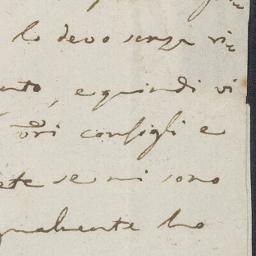 lo devo senza ri=
, e quindi vi
vri consigli e
ete se mi sono
gualmente ho